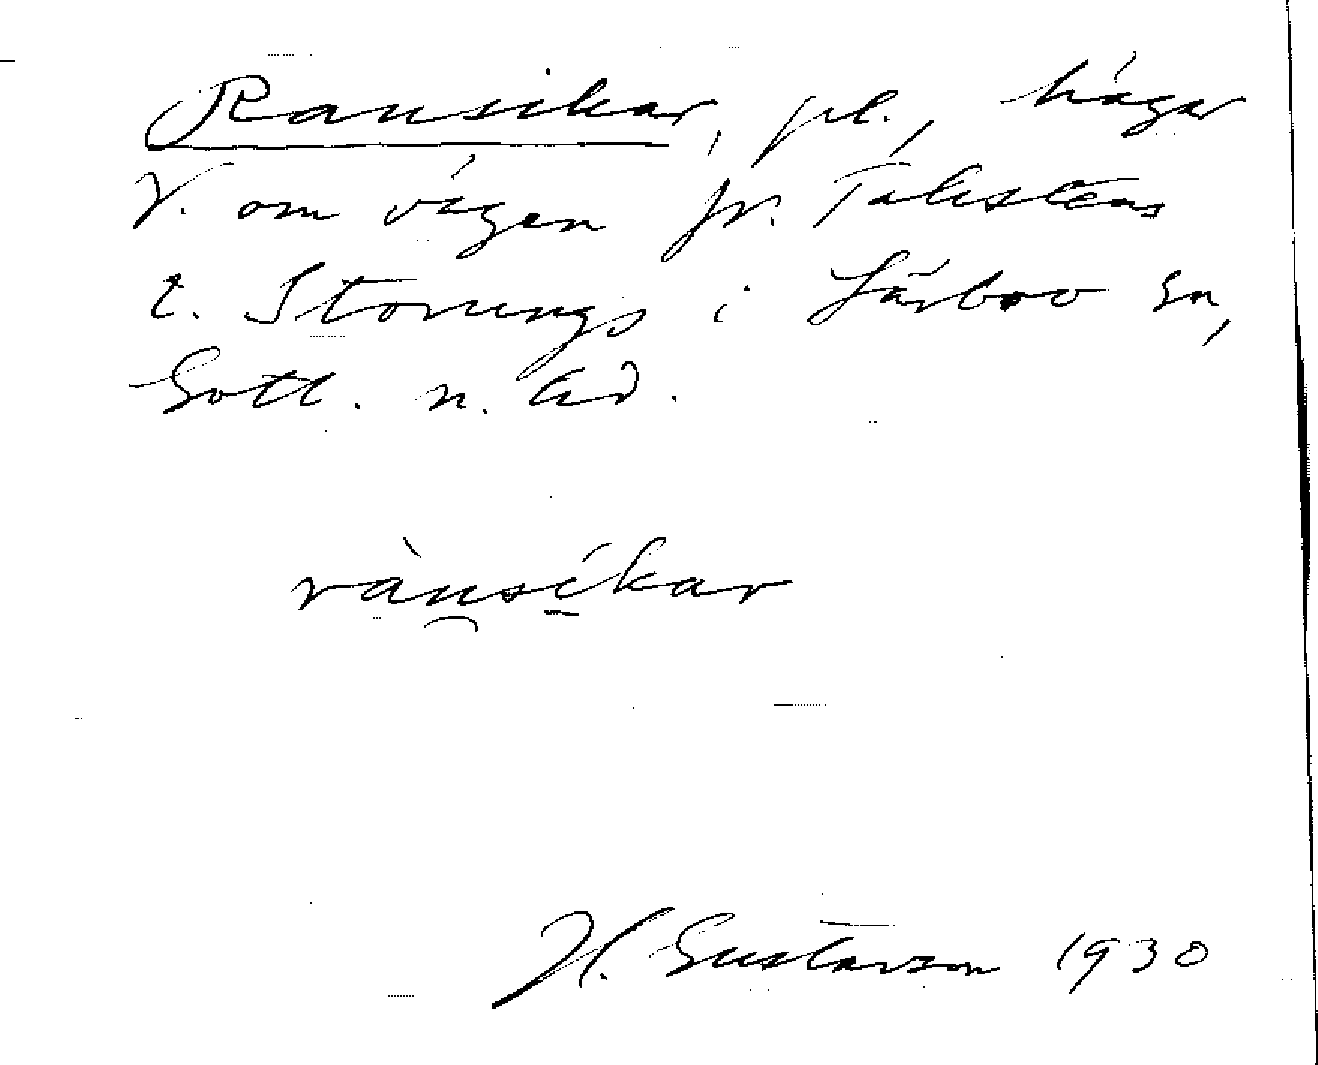 Rausikar, pl., hägar
V. om vägen fr. Takstens
t. Storungs i Lärbro sn,
Gotl. n. hd.
ràu̯sí̱kar
H. Gustavson 1930